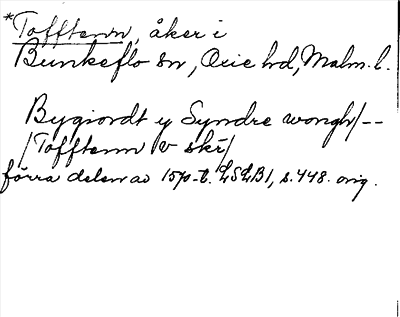 *Tofftenn, åker i
Bunkeflo sn, Oxie hd, Malm. l.
Bygiordt y Syndre wongh/--
/Tofftenn v skr/
förra delen av 1570-t. LSLB1, s.448. orig.